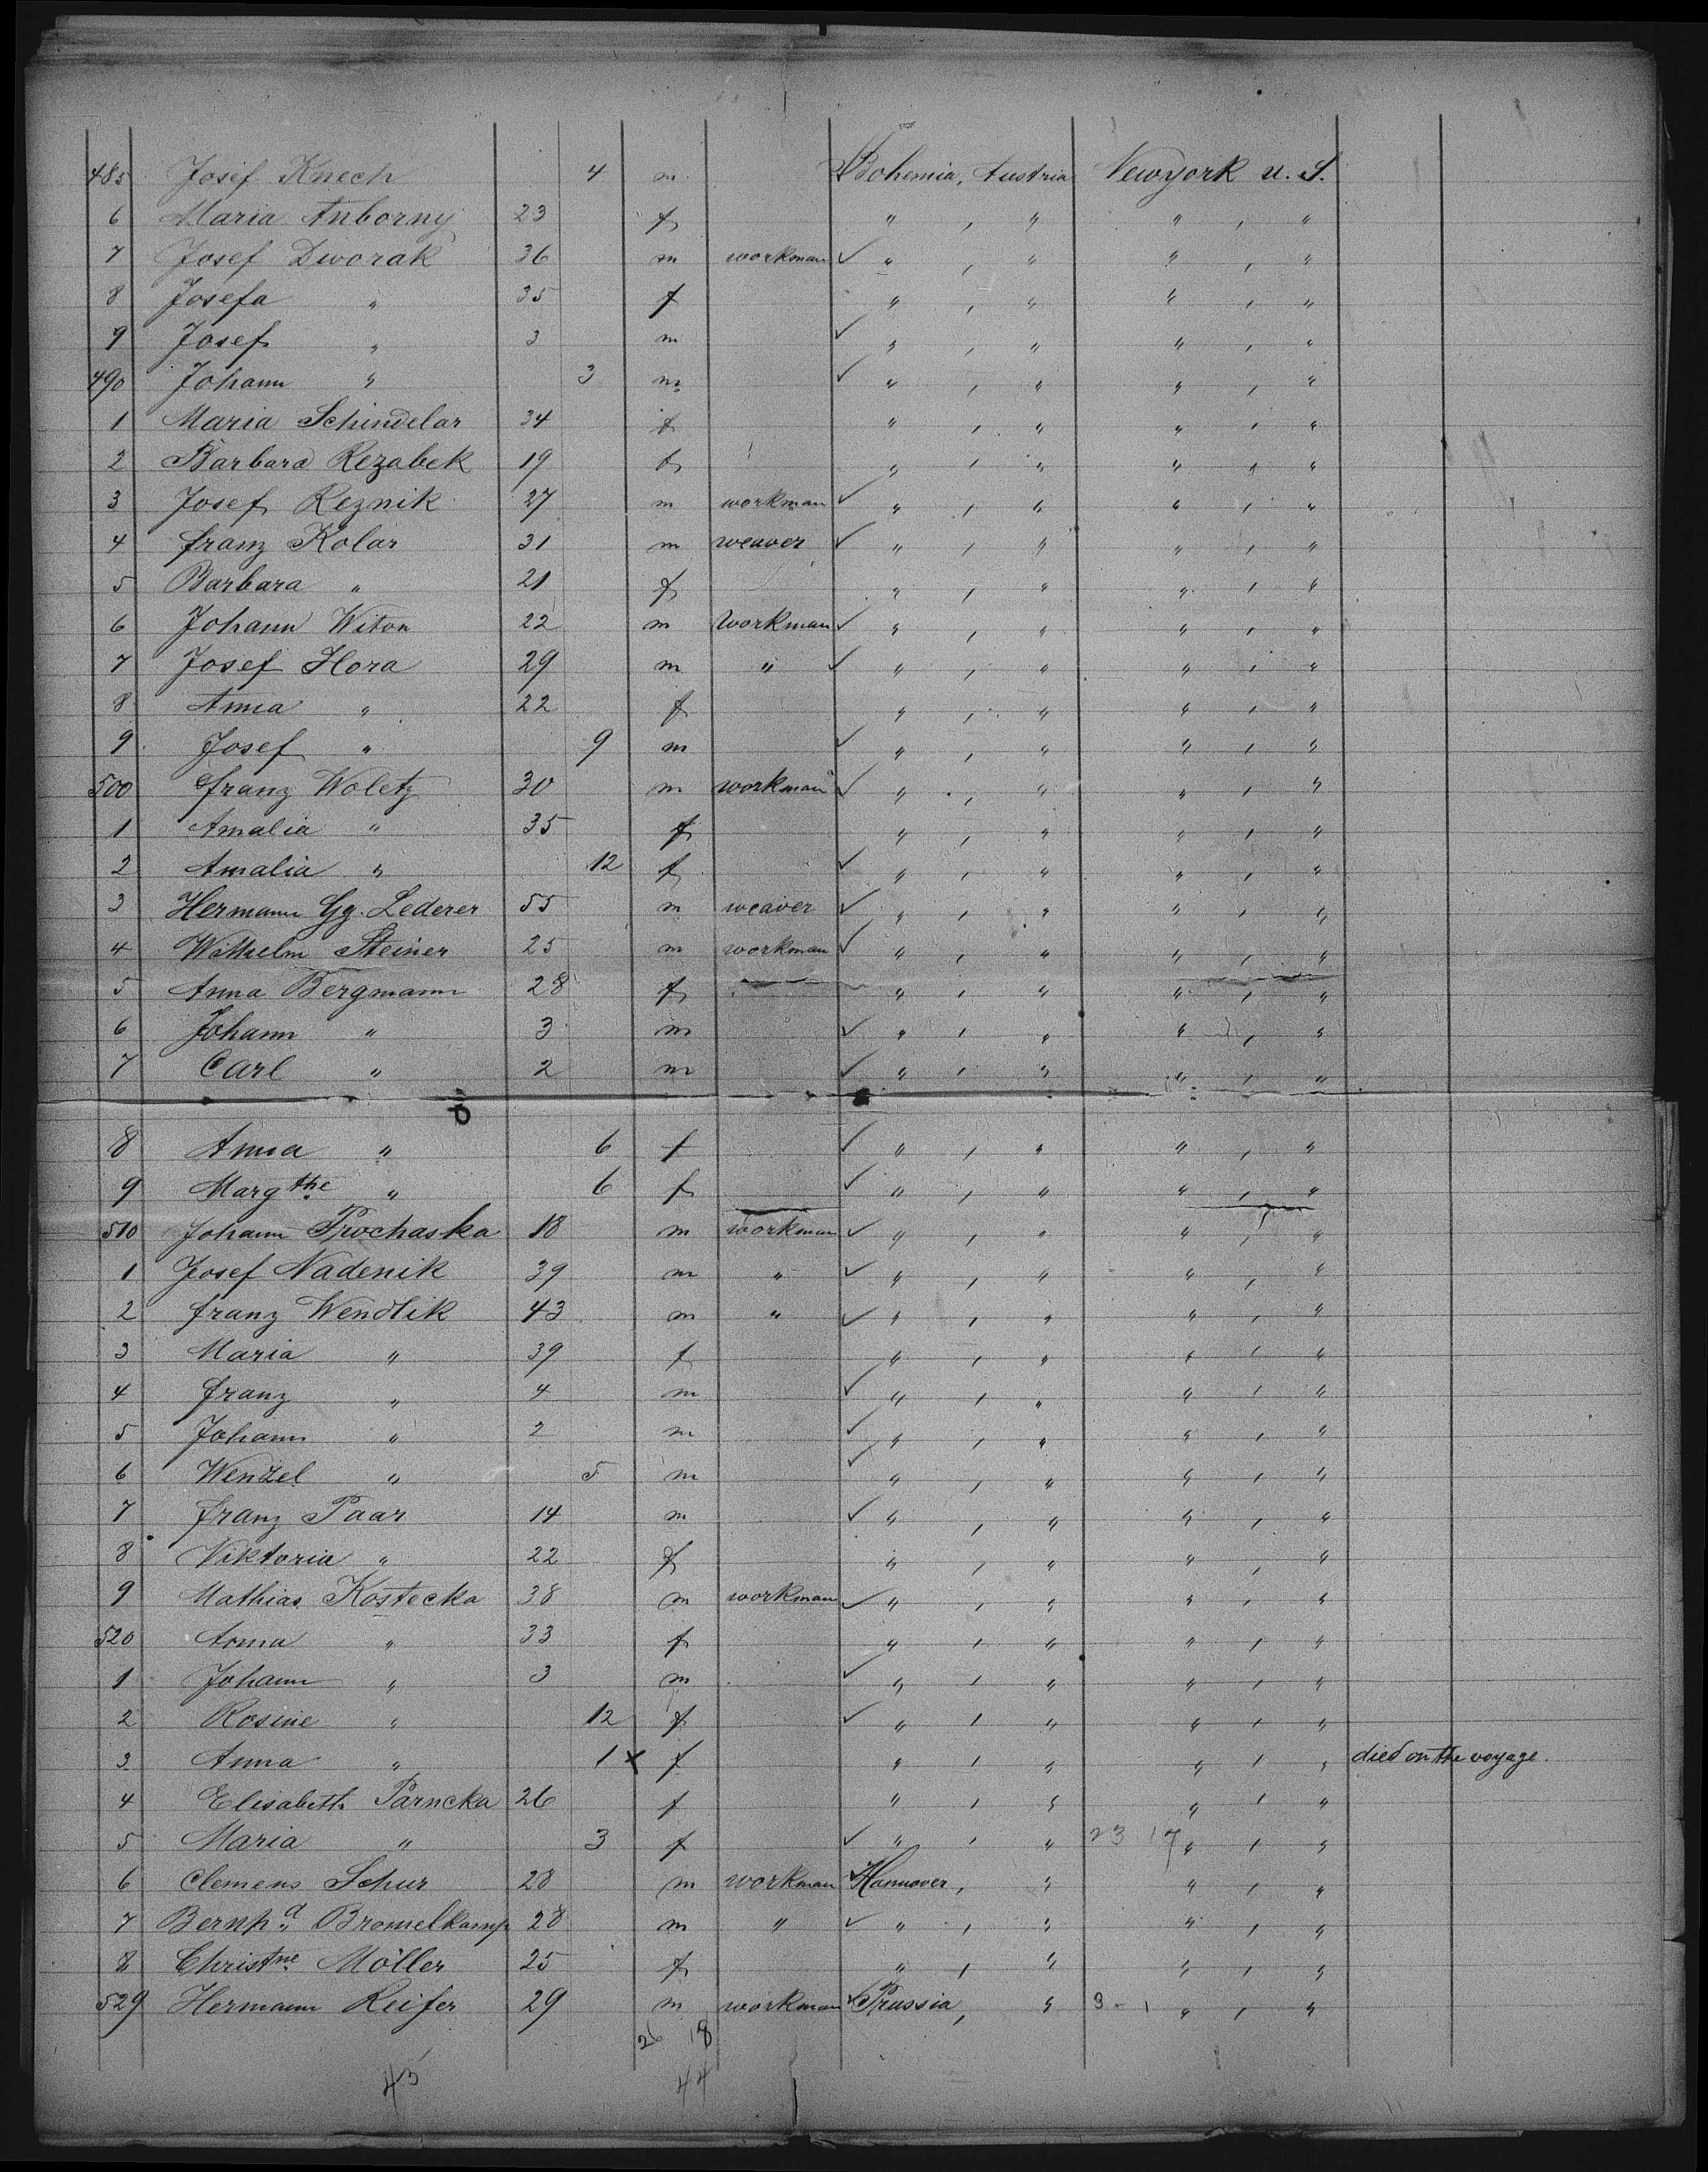 485 Josef Knech 4 m Bohemia, Austria Newyork U. S.
6 Maria Anborny 23 f " , " " , "
7 Josef Dworak 36 m workman ✓ " , " " , "
8 Josefa " 35 f " , " " , "
9 Josef " 3 m ✓ " , " " , "
490 Johann " 3 m ✓ " , " " , "
1 Maria Schindelar 34 f " , " " , "
2 Barbara Rezabek 19 f " , " " , "
3 Josef Reznik 27 m workman ✓ " , " " , "
4 franz Kolar 31 m weaver ✓ " , " " , "
5 Barbara " 21 f " , " " , "
6 Johann Witon 22 m workman ✓ " , " " , "
7 Josef Hora 29 m " ✓ " , " " , "
8 Anna " 22 f " , " " , "
9 Josef " 9 m ✓ " , " " , "
500 franz Woletz 30 m workman ✓ " , " " , "
1 Amalia " 35 f " , " " , "
2 Amalia " 12 f ✓ " , " " , "
3 Hermann Gg. Lederer 55 m weaver ✓ " , " " , "
4 Wilhelm Steiner 25 m workman ✓ " , " " , "
5 Anna Bergmann 28 f " , " " , "
6 Johann " 3 m ✓ " , " " , "
7 Carl " 2 m ✓ " , " " , "
8 Anna " 6 f ✓ " , " " , "
9 Margthe " 6 f ✓ " , " " , "
510 Johann Prochaska 18 m workman ✓ " , " " , "
1 Josef Nadenik 39 m " ✓ " , " " , "
2 franz Wendlik 43 m " ✓ " , " " , "
3 Maria " 39 f " , " " , "
4 franz " 4 m ✓ " , " " , "
5 Johann " 2 m ✓ " , " " , "
6 Wenzel " 5 m ✓ " , " " , "
7 franz Paar 14 m ✓ " , " " , "
8 Viktoria " 22 f " , " " , "
9 Mathias Kostecka 38 m workman ✓ " , " " , "
520 Anna " 33 f " , " " , "
1 Johann " 3 m ✓ " , " " , "
2 Rosine " 12 f ✓ " , " " , "
3 Anna " 1 x f " , " " , " died on the voyage.
4 Elisabeth Parncka 26 f " , " " , "
5 Maria " 3 f ✓ " , " 23 17 " , "
6 Clemens Schur 28 m workman ✓ Hannover, " " , "
7 Bernhd Bromelkamp 28 m " ✓ " , " " , "
8 Christne Möller 25 f " , " " , "
529 Hermann Reifer 29 m workman ✓ Prussia, " 3 1 " , "
26 18
45 44